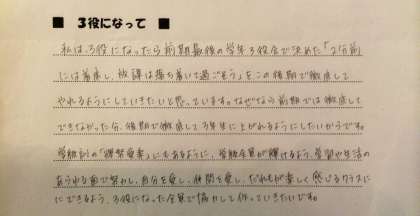 ■ 3役になって ■
私は、3役になったら前期最後の学年3役会で決めた「2分前
には着席し、放課は落ち着いて過ごそう」をこの後期で徹底して
やれるようにしていきたいと思っています。なぜなら前期では徹底して
できなかった分、後期で徹底して3年生に上がれるようにしたいからです。
学級訓の「 」にもあるように、学級全員が輝けるよう、学習や生活の
あらゆる面で努力し、自分を愛し、仲間を愛し、だれもが楽しく感じるクラスに
にできるよう、3役になった全員で協力して作っていきたいです。